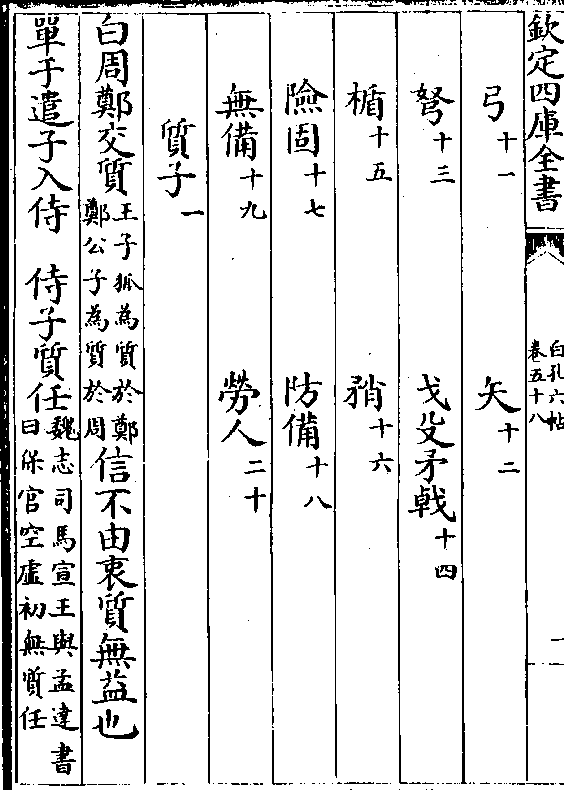 欽定四庫全書
白孔六帖
卷五十八
一
弓十一 矢十二
弩十三 戈殳矛戟十四
楯十五 矟十六
險固十七 防備十八
無備十九 勞人二十
質子一
白周鄭交質王子狐為質於鄭鄭公子為質於周信不由衷質無益也
單于遣子入侍 侍子質任魏志司馬宣王與孟達書曰保官空虛初無質任